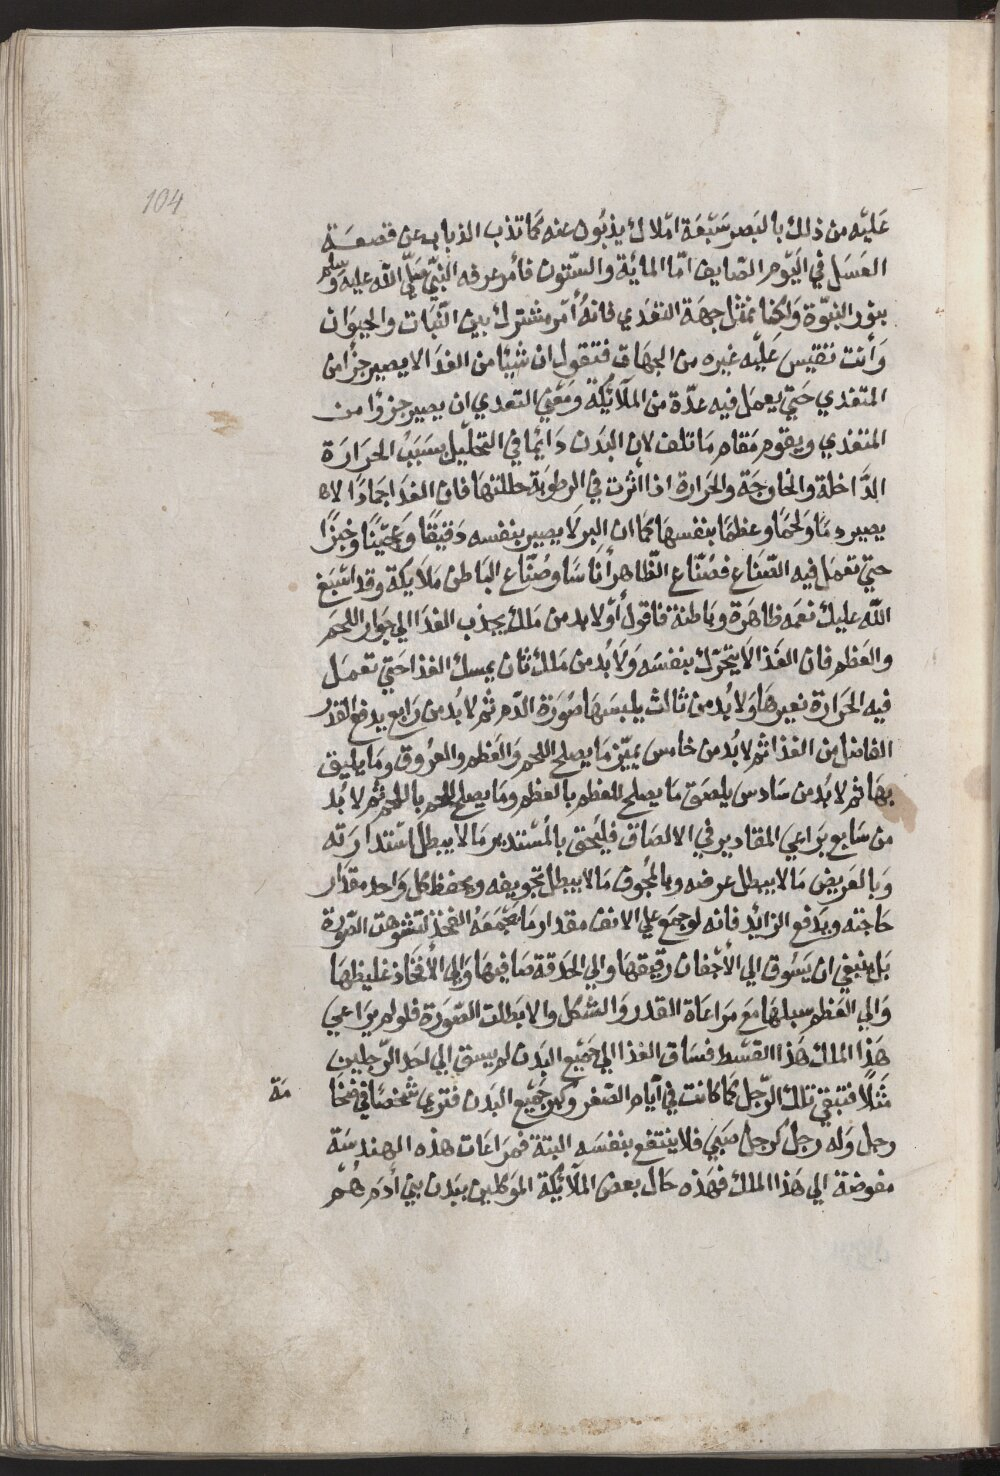 104
عَليْه من ذلك بالبَصر سَبْعَة امْلاك يذبُون عنه كمَا تذب الذباب عن قصعَة
العَسَل في اليَوْم الصَايف امّا المائَة والستّون فأمر عرفه النبيّ صَلّي اللّه عليه وَسلم
بنور النبوّة وَلكنا نمثل جهَة التغدي فانهُ أمْر مشترك بين النّبَات والحيوَان
وَأنت تقيس عَليْه غيره من الجهَات فتقول ان شيئا من الغدَا لا يصير جزأ من
المتغدي حَتيّ يعمَل فيه عدّة من الملَآئكة وَمَعْنيَ التعدي ان يصير جزوٌا من
المتغدي ويقوم مَقام مَا تلف لان البَدن دَايمًا في التحليْل بسَبَب الحرَارَة
الدَّاخلة والخارجَة والحَرارة اذا اثرت في الرطوبَة حللتهَا فان الغدَا جمَادًا لا
يصير دمًا وَلحمًا وعظمًا بنفسهَا كمَا ان البر لَا يصير بنفسه دَقيقًا وَعَجيْنًا وَخبزًا
حتيّ تعمَل فيه الصّنَاع فصُنّاع الظّاهر أنَاسًا وصُنّاع البَاطن مَلايكة وقد اسْبَغ
اللّه عليك نعَمه ظاهَرة وبَاطنة فاقول أوّلا بد من مَلك يجذب الغدَا الي جوَار اللحم
والعَظم فان الغَذا لَا يتحرّك بنفسَه وَلَا بُد من مَلك ثان يمسك الغذا حَتي تعمَل
فيه الحَرَارة نعيرهَا وَلا بُد من ثالث يلبسَهَا صُوَرة الدّم ثم لا بُد من رَابع يدفع القدْر
الفاضل من الغذا ثم لا بُد من خامس يميّز مَا يصلح اللحم وَالعَظم والعرُوق ومَا يليق
بهَا ثم لا بُد من سَادس يلصَق مَا يصلح للعظم بالعظم ومَا يصلح للحم باللحم ثم لا بُد
من سَابع يرَاعي المقادير في الالصَاق فليَحق بالمُسْتدير مَا لا يبطل اسْتدارَته
وَبالعَريض مَا لا يبطل عرضه وبالمجوف مَا لا يبطل تجويفه ويحفظ كل وَاحد مقدَار
حَاجته ويدَفع الزائد فانه لو جمَع علي الانف مقدار مَا يَجْمَعَهُ الفخذ لتشوهت الصّورَة
بَل ينبغي ان يَسُوق الي الأجْفان رقيقهَا والي الحَدقة صَافيهَا وَالي الأفخَاذ غليظهَا
وَالي العَظم سبلهَا مَع مَراعَاة القدر وَالشكل والا بَطلت الصّوَرَة فلو لم يرَاعي
هَذا الملك هَذا القسْط فسَاق الغذا الي جَميْع البَدن لم يسق الي احَد الرّجلين
مَثَلًا فتبقيَ تلك الرّجل كمَا كانت في أيّام الصّغر وكبر جَميْع البَدن فتري شخصًا في ضخَا
مَة
رجل وَله رجل كرجل صَبي فلا ينتفع بنفسَه البتة فمرَاعَات هذه الهندسَة
مفوضة الي هَذا الملك فهَذه حَال بعض الملَآئكة الموَكلين ببَدن بَني أدَم هُمْ